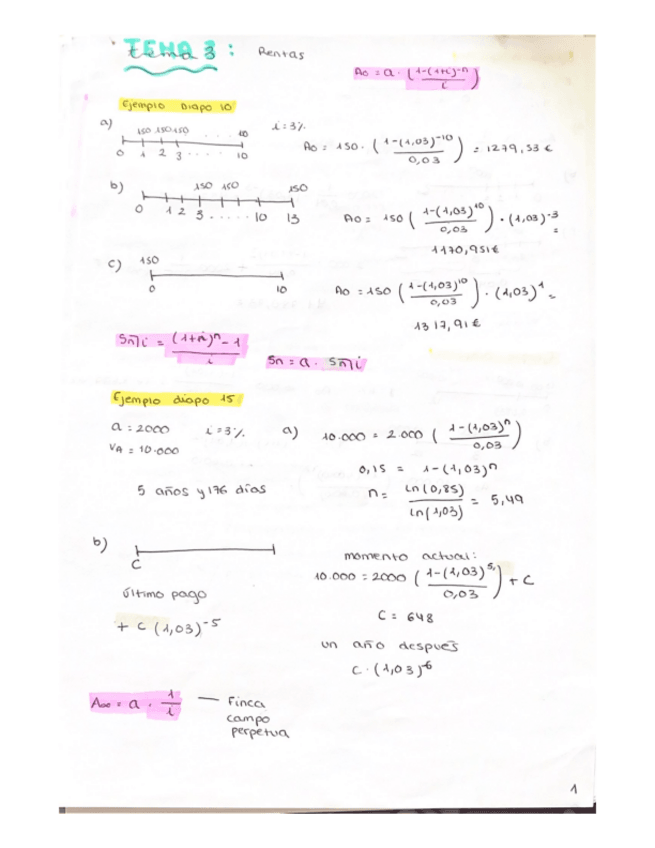 TEMA 3 : Rentas
A0 = a · (1-(1+i)^-n / i)
Ejemplo Diapo 10
a) 150 150 150 . . . 10 i = 3%
0 1 2 3 . . . . 10
A0 = 150 · (1-(1,03)^-10 / 0,03) = 1279,53 €
b) 150 150 150
0 1 2 3 . . . . . 10 13
A0 = 150 (1-(1,03)^10 / 0,03) · (1,03)^-3 =
1170,951€
c) 150
0 10
A0 = 150 (1-(1,03)^10 / 0,03) · (1,03)^1 =
1317,91 €
Sn¬i = (1+i)^n - 1 / i
Sn = a · Sn¬i
Ejemplo diapo 15
a = 2000 i = 3%
VA = 10.000
5 años y 176 días
a) 10.000 = 2.000 (1-(1,03)^n / 0,03)
0,15 = 1-(1,03)^n
n = ln(0,85) / ln(1,03) = 5,49
b) C
último pago
+ C (1,03)^-5
momento actual:
10.000 = 2000 (1-(1,03)^5 / 0,03) + C
C = 648
un año después
C · (1,03)^6
A∞ = a · 1/i — Finca
campo
perpetua
1